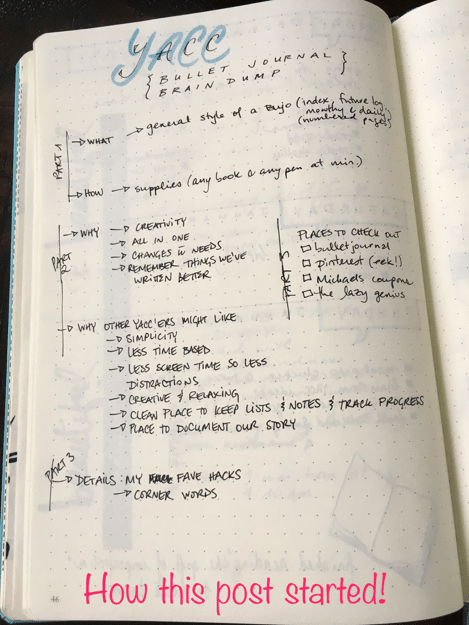 YACC
{BULLET JOURNAL}
{BRAIN DUMP}
PART 1
→ WHAT → general style of a Bujo (index, future log,
monthly & daily)
(numbered pages)
→ HOW → supplies (any book & any pen at min.)
PART 2
→ WHY → CREATIVITY
→ ALL IN ONE
→ CHANGES W NEEDS
→ REMEMBER THINGS WE'VE
WRITTEN BETTER
→ WHY OTHER YACC'ERS MIGHT LIKE
→ SIMPLICITY
→ LESS TIME BASED
→ LESS SCREEN TIME SO LESS
DISTRACTIONS
→ CREATIVE & RELAXING
→ CLEAN PLACE TO KEEP LISTS & NOTES & TRACK PROGRESS
→ PLACE TO DOCUMENT OUR STORY
PLACES TO CHECK OUT
☐ bulletjournal
☐ pinterest (eek!)
☐ Michaels coupons
☐ the lazy genius
PART 3
→ DETAILS: MY FAVE HACKS
→ CORNER WORDS
46
How this post started!